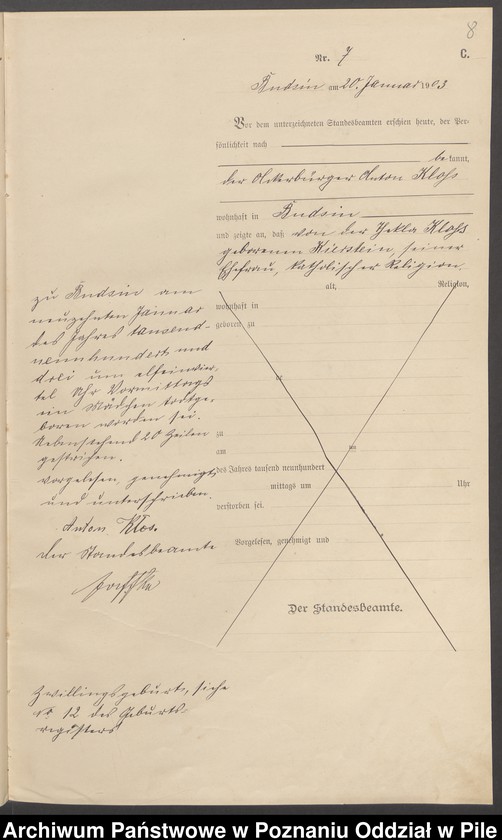 8
Nr. 7
C.
Budsin am 20. Januar 1903
Vor dem unterzeichneten Standesbeamten erschien heute, der Per-
sönlichkeit nach
bekannt,
der Ackerbürger Anton Kloss
wohnhaft in Budsin
und zeigte an, daß von der Thekla Kloss
geborenen Hirstein, seiner
Ehefrau, katholischer Religion
alt, Religion,
wohnhaft in
geboren zu
zu
am um
des Jahres tausend neunhundert
mittags um Uhr
verstorben sei.
Vorgelesen, genehmigt und
Der Standesbeamte.
zu Budsin am
neunzehnten Januar
des Jahres tausend-
neunhundert und
drei um elfeinvier-
tel Uhr Vormittags
ein Mädchen todtge-
boren worden sei.
Nebenstehend 20 Zeilen
gestrichen.
Vorgelesen, genehmigt
und unterschrieben.
Anton Klos.
Der Standesbeamte
Zwillingsgeburt, siehe
№ 12 des Geburts-
registers
Archiwum Państwowe w Poznaniu Oddział w Pile